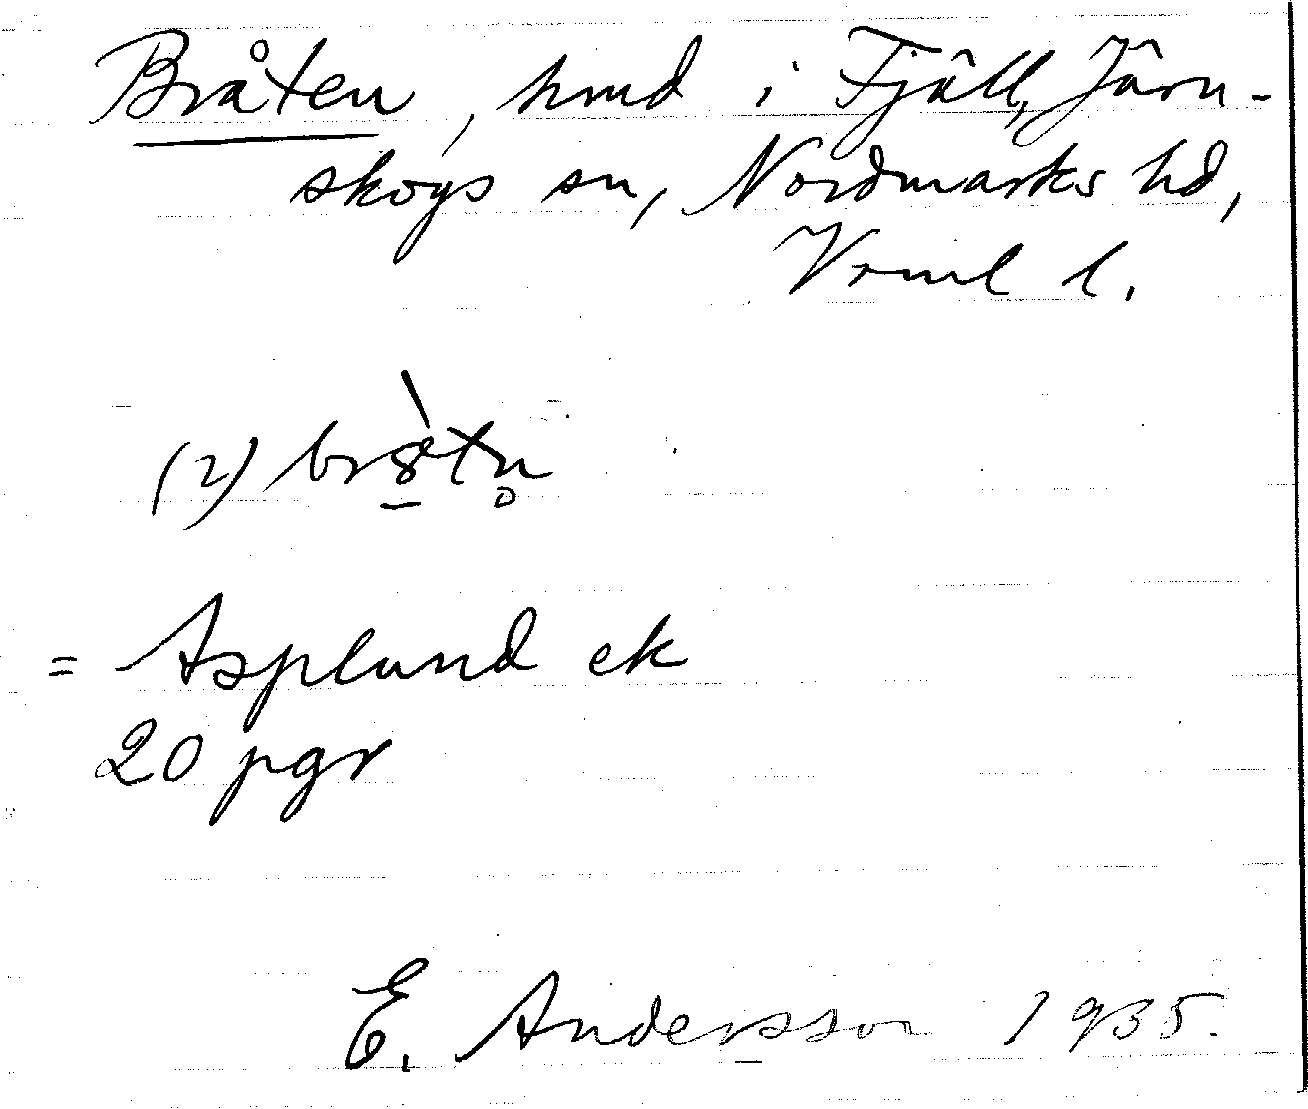 Bråten, hmd i Fjäll, Järn-
skogs sn, Nordmarks hd,
Vrml l.
(2) br8̱̀tn̥
= Asplund ek
20 pgr
E. Andersson 1935.